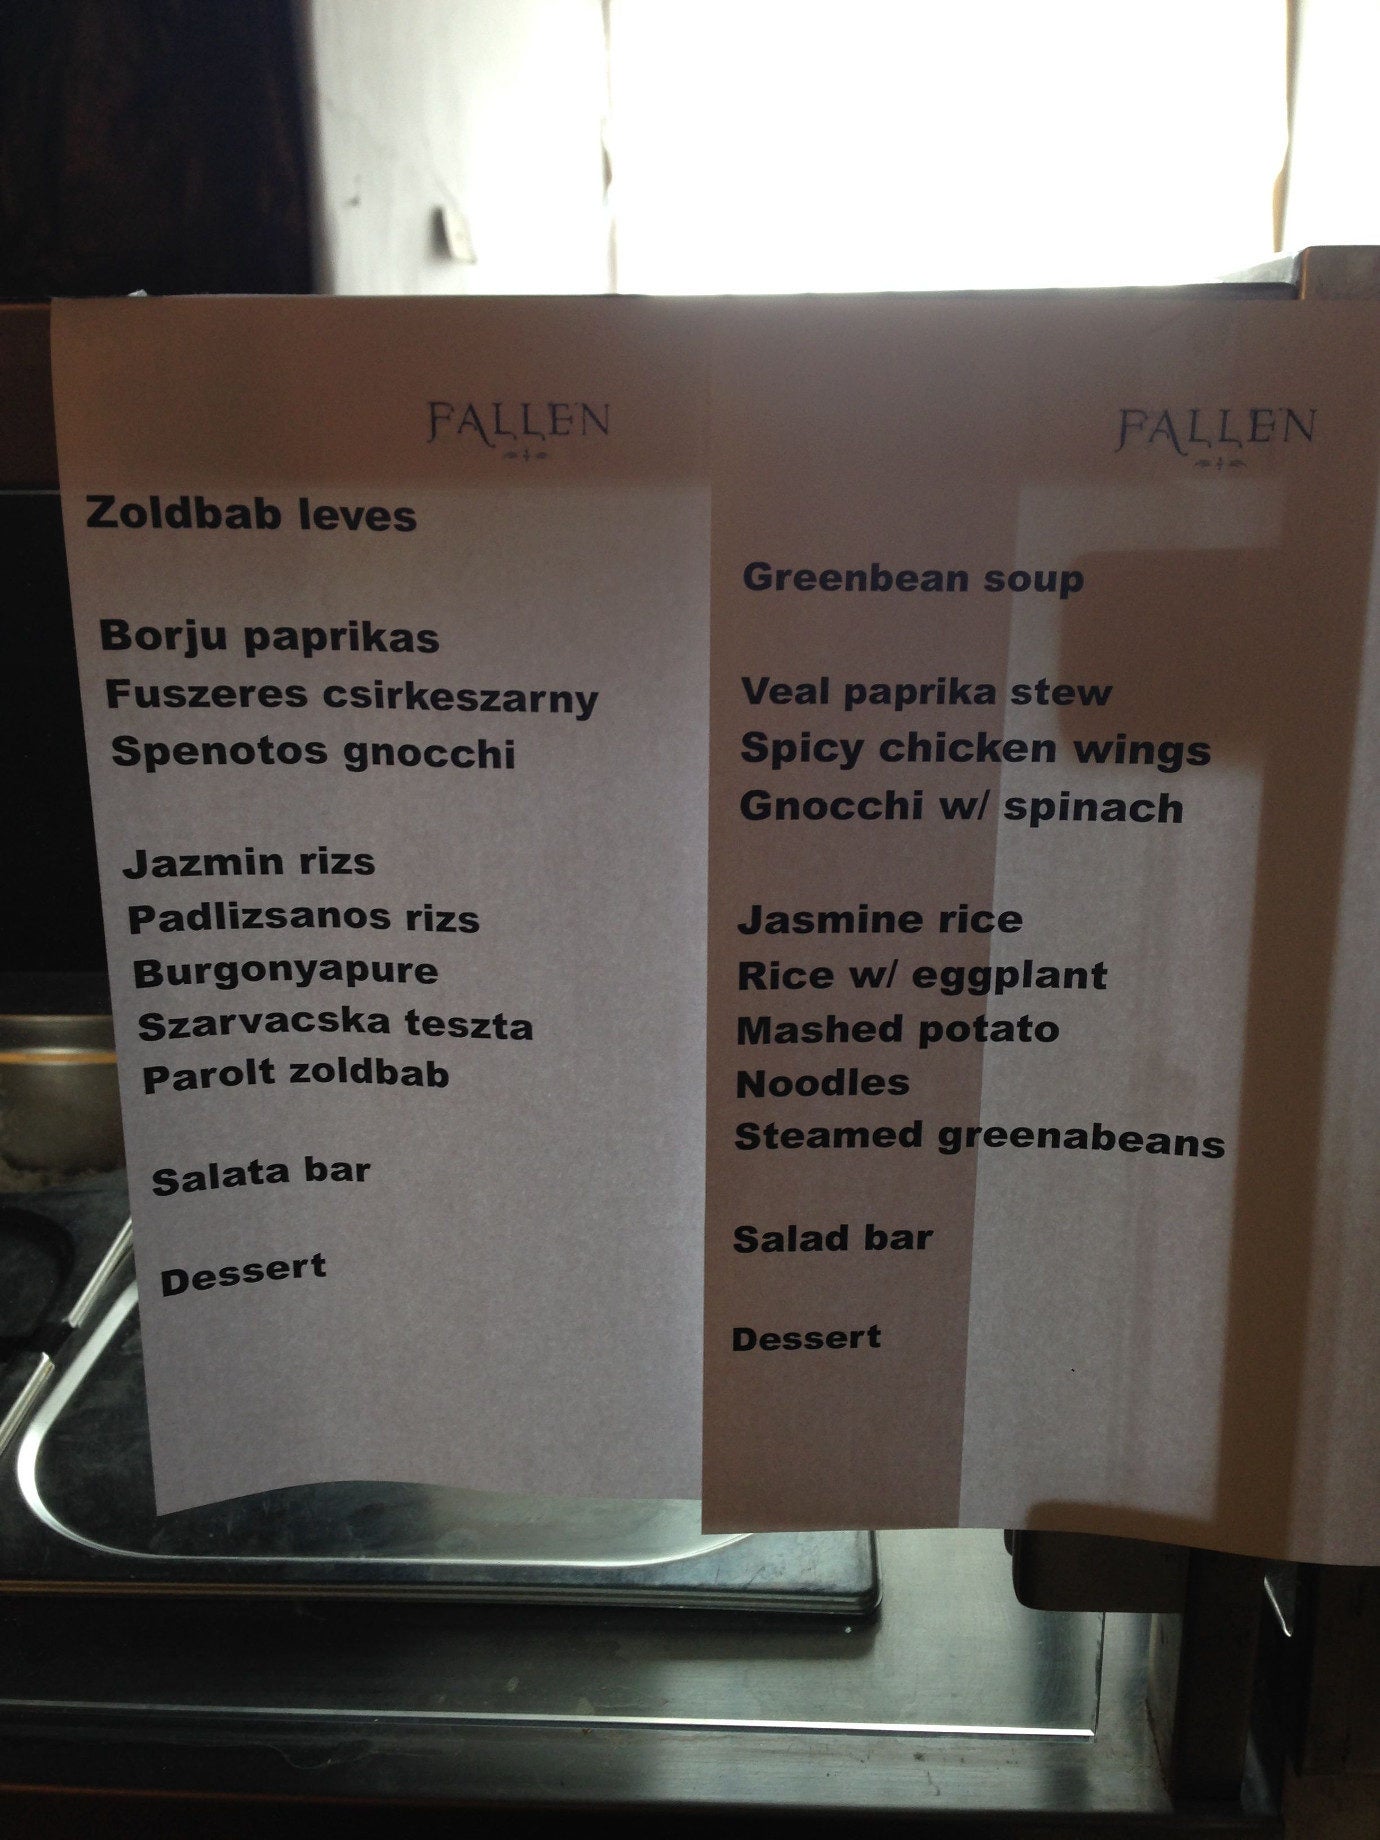 FALLEN
Zoldbab leves
Borju paprikas
Fuszeres csirkeszarny
Spenotos gnocchi
Jazmin rizs
Padlizsanos rizs
Burgonyapure
Szarvacska teszta
Parolt zoldbab
Salata bar
Dessert
FALLEN
Greenbean soup
Veal paprika stew
Spicy chicken wings
Gnocchi w/ spinach
Jasmine rice
Rice w/ eggplant
Mashed potato
Noodles
Steamed greenabeans
Salad bar
Dessert